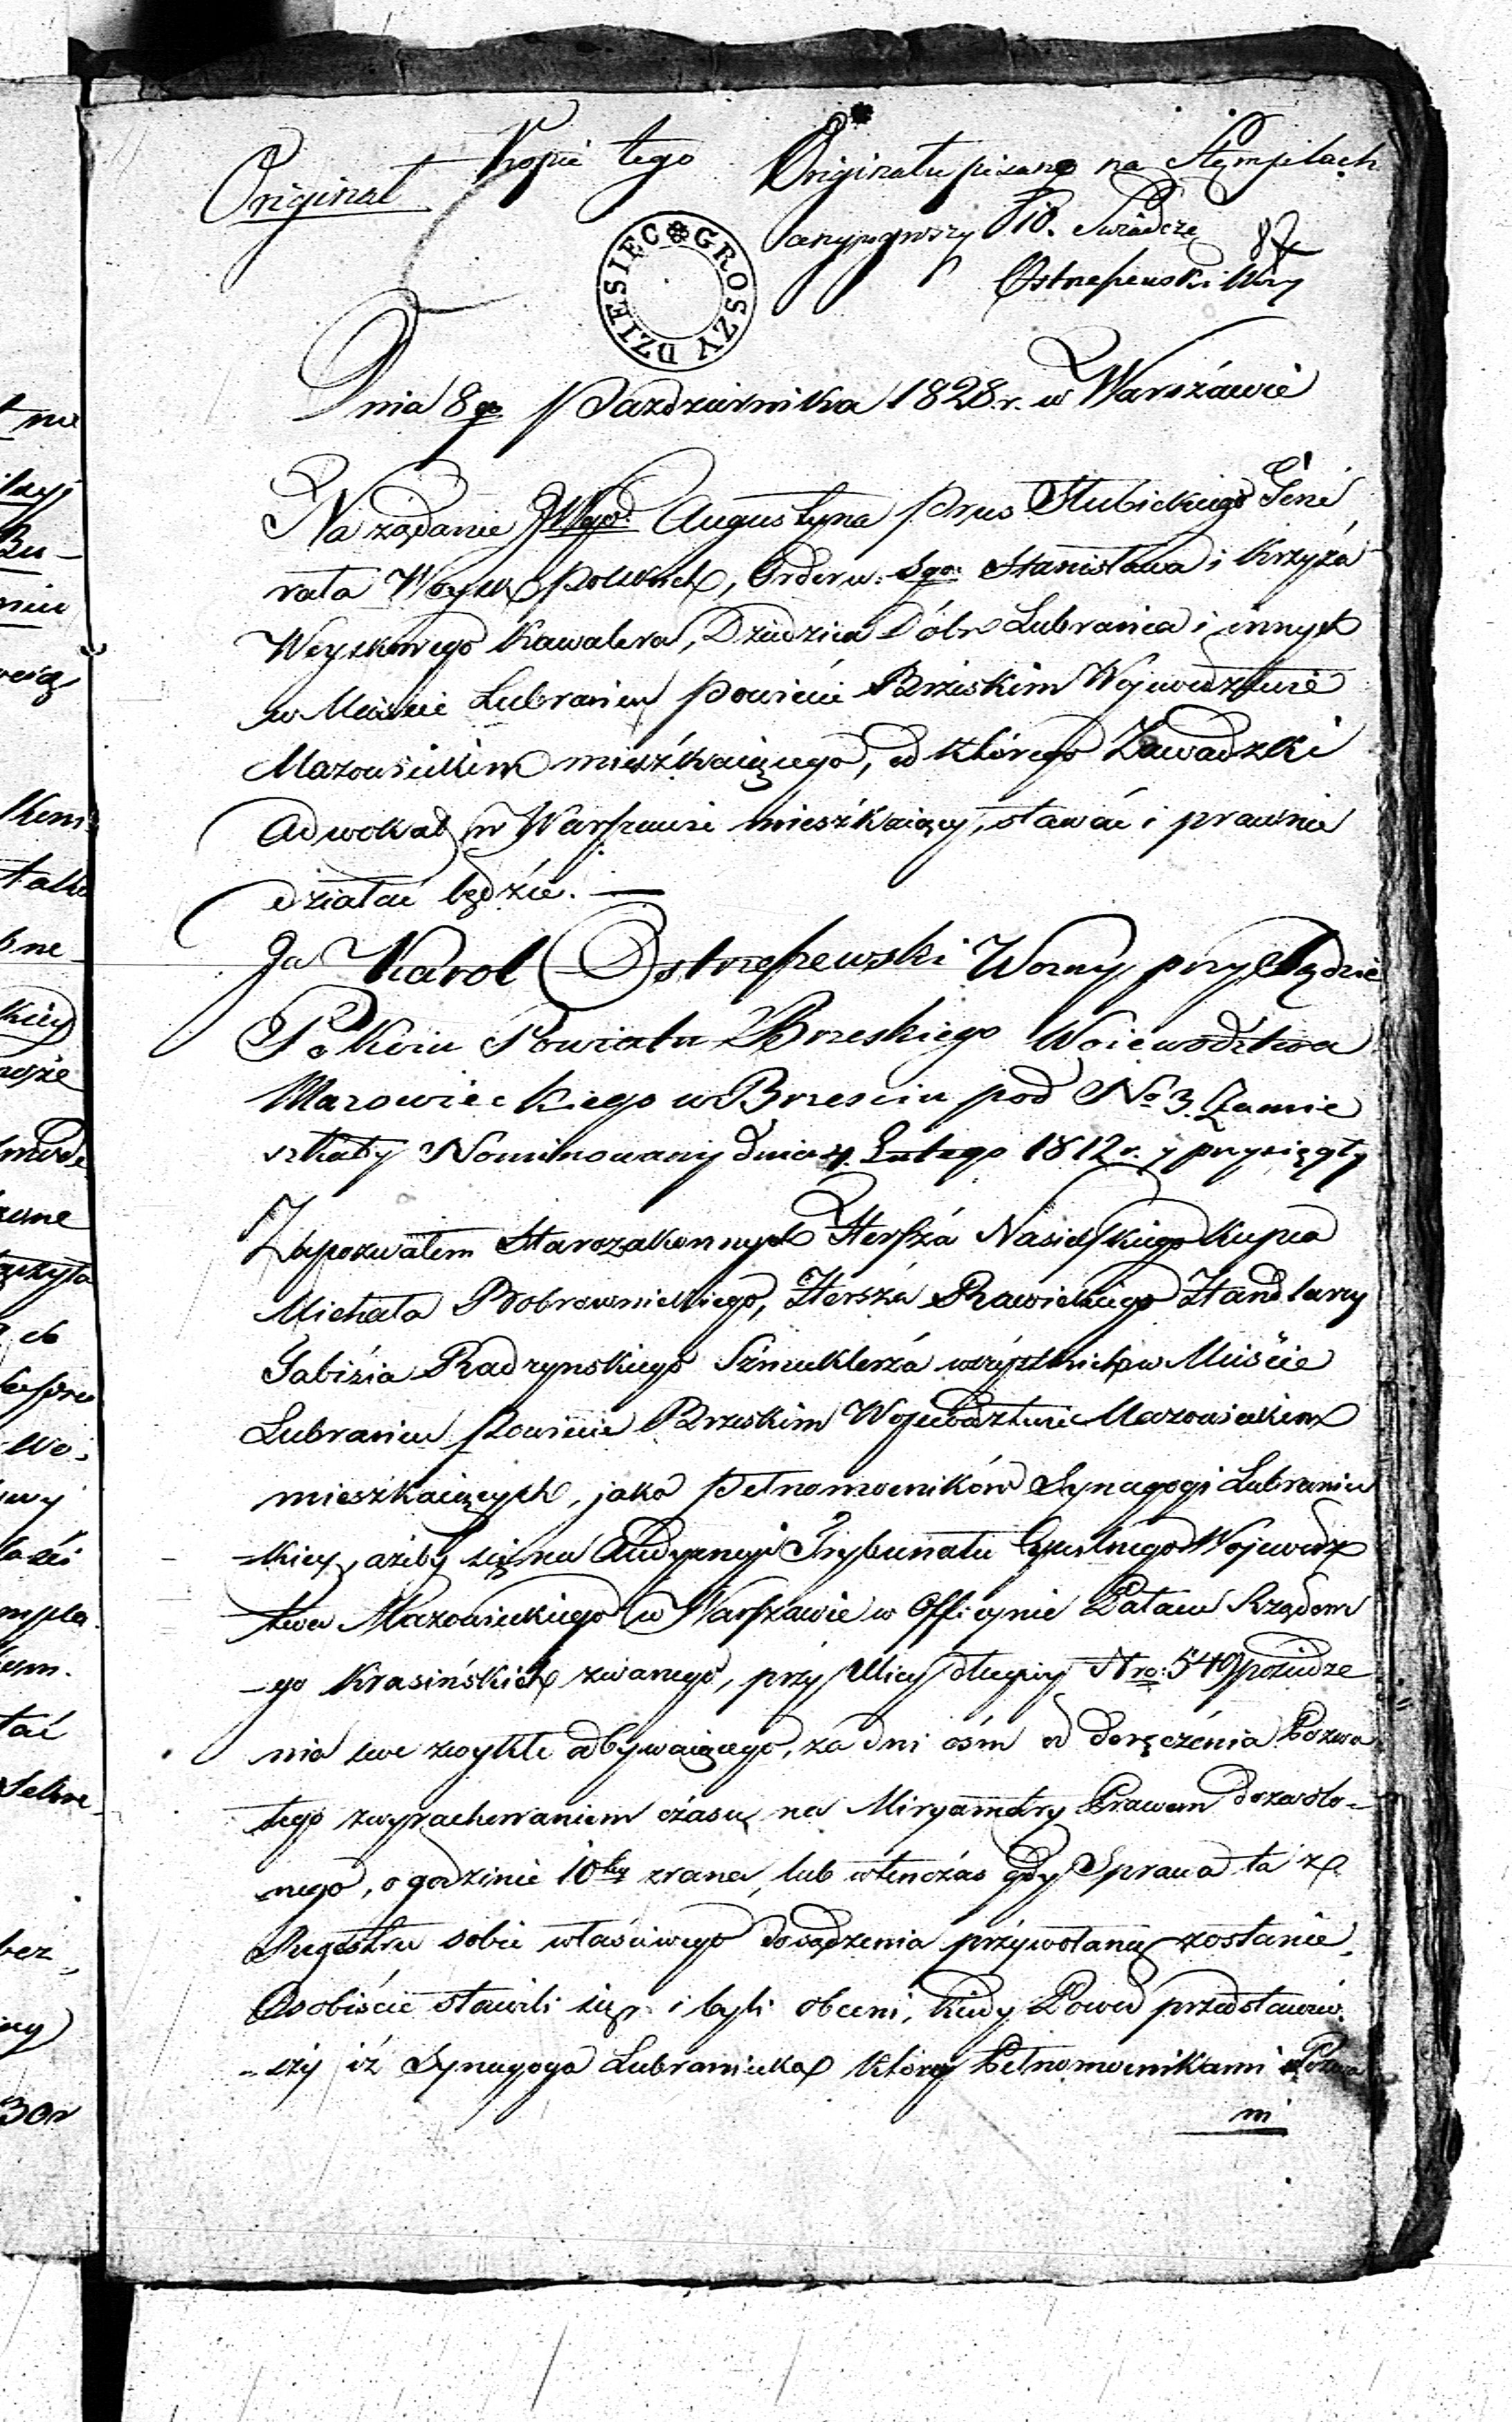 Originał
Kopie tego Originału pisane na Stęmpilach
10. Świadczę
87
Ostrszewski Wźny
DZIESIĘC GROSZY
Dnia 8go Pazdziernika 1828.r. w Warszawie
Na ządanie JWgo Augustyna Prus Słubickiego Gene
rała Woysk Polskich, Orderu Sgo: Stanisława i Krzyża
Woyskowego Kawalera, Dziedzica Dóbr Lubrańca i innych
w Mieście Lubrańcu Powiecie Brzeskim Wojewodztwie
Mazowieckim mieszkaiącego, od którego Zawadzki
Adwokat w Warszawie mieszkaiący, stawać i prawnie
działać będzie. —
Ja Karol Ostrszewski Wozny przy Sądzie
Pokoiu Powiatu Brzeskiego Woiewodztwa
Mazowieckiego w Brzesciu pod No 3. Zamie
szkały Nominowany dnia 4. Lutego 1812 r. y przysięgły
Zapozwałem Starozakonnych Hersza Nasielskiego Kupca
Michała Dobrownickiego, Hersza Rawickiego Handlarzy
Gabisia Radzynskiego Szmuklerza wszystkich w Mieście
Lubrańcu Powiecie Brzeskim Wojewodztwie Mazowieckim
mieszkaiących, jako Pełnomocników Synagogi Lubraniec
-kiey, ażeby się na Audyencyi Trybunału Cywilnego Wojewodz
twa Mazowieckiego w Warszawie w Officynie Pałacu Rządow
-go Krasińskich zwanego, przy Ulicy długiey Nro: 549 posiedze
nia swe zwykle odbywaiącego, za dni ośm od doręczenia Pozwu
tego zwyrachowaniem czasu na Miryametry Prawem dozwolo-
nego, o godzinie 10tey zrana, lub wtenczas gdy Sprawa ta z
Regestru sobie właściwego do sądzenia przywołaną zostanie,
Osobiście stawili się i byli obecni, kiedy Powód przedstawiw-
-szy iż Synagoga Lubraniecka którey Pełnomocnikami Pozwa
ni